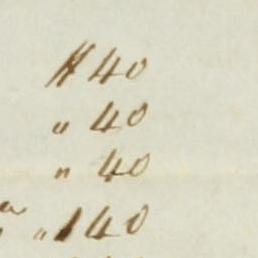 " 40
" 40
" 40
" 140